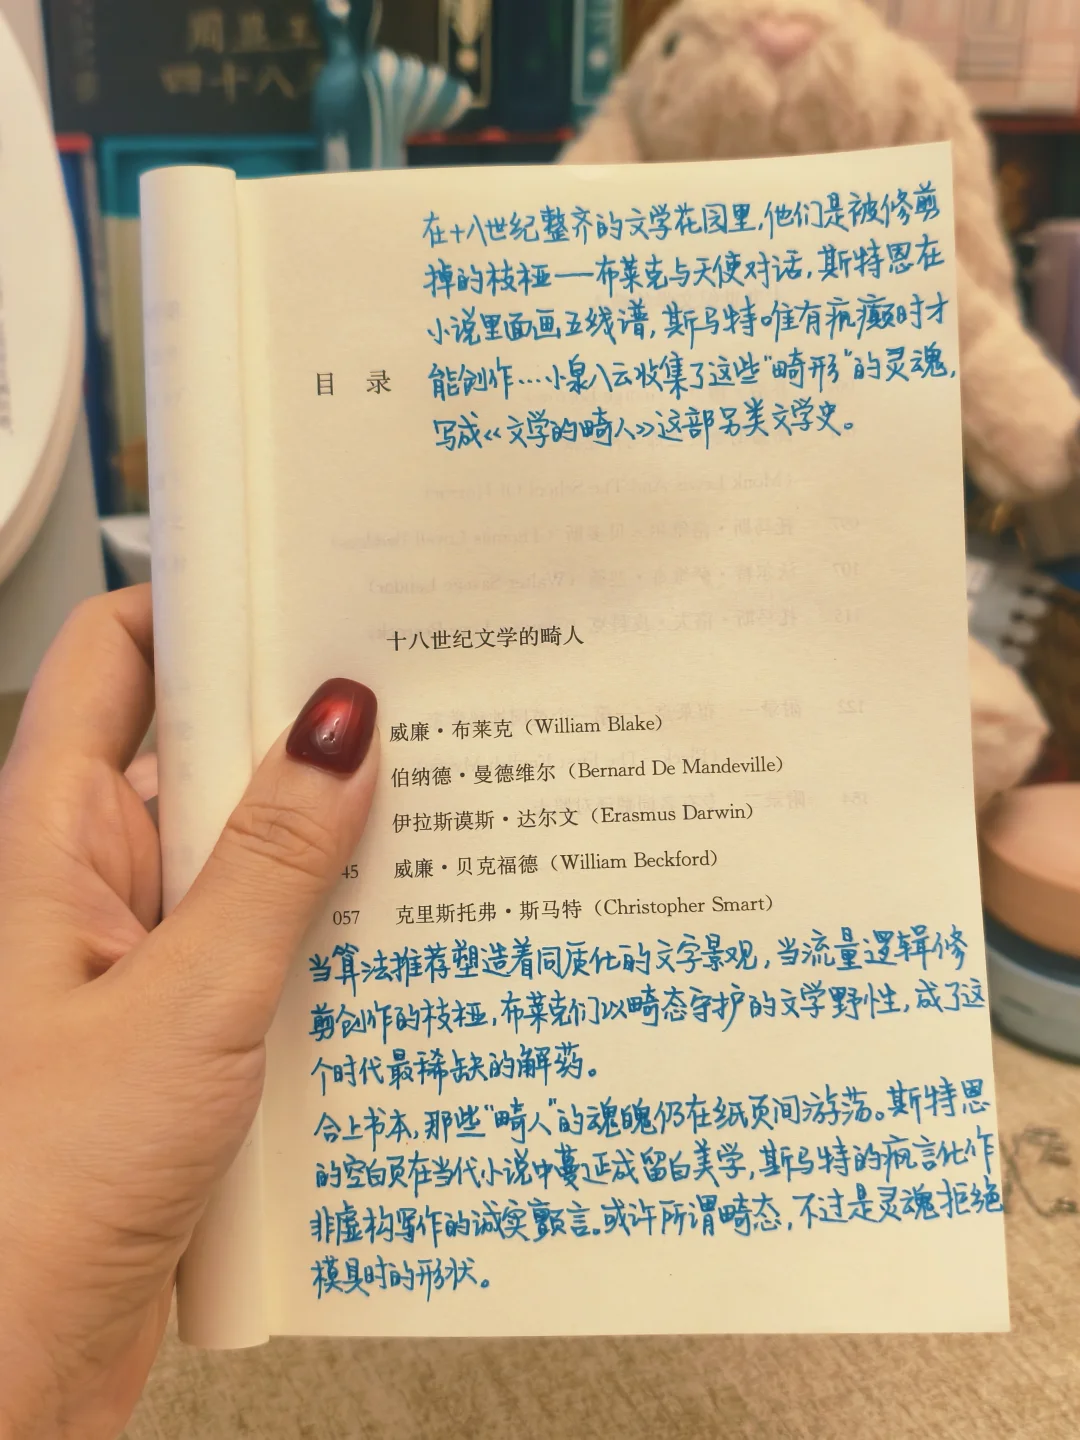 在十八世纪整齐的文学花园里,他们是被修剪
掉的枝桠——布莱克与天使对话,斯特恩在
小说里面画五线谱,斯马特唯有疯癫时才
能创作…小泉八云收集了这些"畸形"的灵魂,
写成《文学的畸人》这部另类文学史。
目 录
十八世纪文学的畸人
威廉·布莱克(William Blake)
伯纳德·曼德维尔(Bernard De Mandeville)
伊拉斯谟斯·达尔文(Erasmus Darwin)
45 威廉·贝克福德(William Beckford)
057 克里斯托弗·斯马特(Christopher Smart)
当算法推荐塑造着同质化的文字景观,当流量逻辑修
剪创作的枝桠,布莱克们以畸态守护的文学野性,成了这
个时代最稀缺的解药。
合上书本,那些"畸人"的魂魄仍在纸页间游荡。斯特恩
的空白页在当代小说中蔓延成留白美学,斯马特的疯言化作
非虚构写作的诚实颤言。或许所谓畸态,不过是灵魂拒绝
模具时的形状。